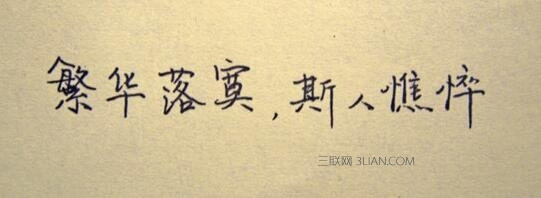 繁华落寞,斯人憔悴
三联网 3LIAN.COM